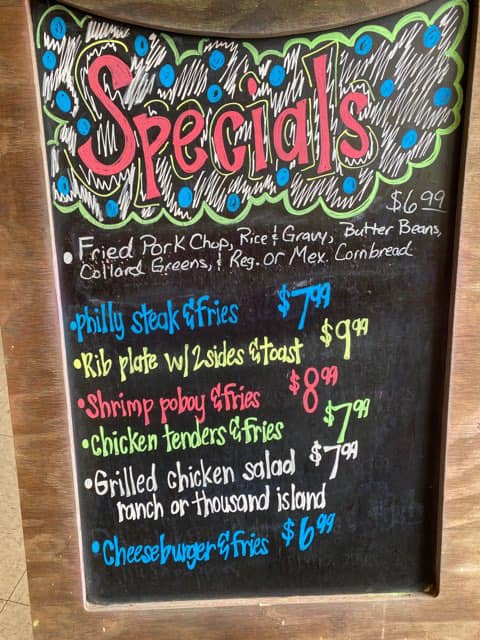 Specials
$6.99
• Fried Pork Chop, Rice & Gravy, Butter Beans,
Collard Greens, & Reg. or Mex. Cornbread
• philly steak & fries $7.99
• Rib plate w/ 2 sides & toast $9.99
• Shrimp poboy & fries $8.99
• chicken tenders & fries $7.99
• Grilled chicken salad $7.99
ranch or thousand island
• Cheeseburger & fries $6.99